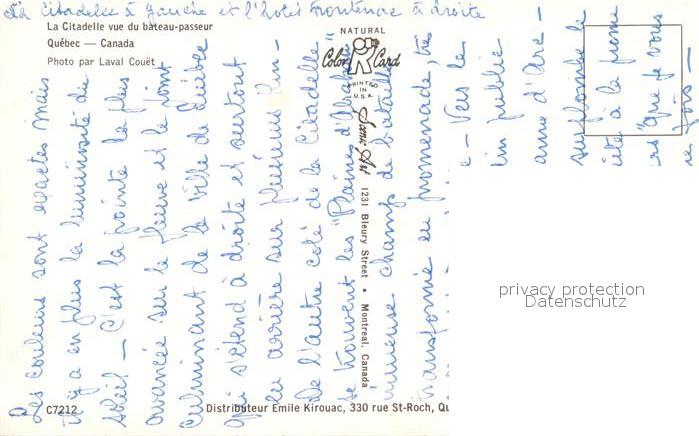 La citadelle à gauche et l'hôtel Frontenac à droite
La Citadelle vue du bateau-passeur
Québec — Canada
Photo par Laval Couët
NATURAL
Color Card
PRINTED
IN
U.S.A.
1231 Bleury Street • Montreal, Canada
C7212
Distributeur Emile Kirouac, 330 rue St-Roch, Qu
Les couleurs sont exactes mais
il y a en plus la luminosité du
soleil — C'est la pointe la plus
avancée sur le fleuve et le point
culminant de la ville de Québec
qui s'étend à droite et surtout
en arrière sur plusieurs km —
De l'autre coté de la Citadelle
se trouvent les "Plaines d'Abraham"
immense champs de bataille
transformé en promenade, très
e — Vers le
in public
anne d'Arc —
surplombe le
été à la
rs "que je vous
privacy protection
Datenschutz